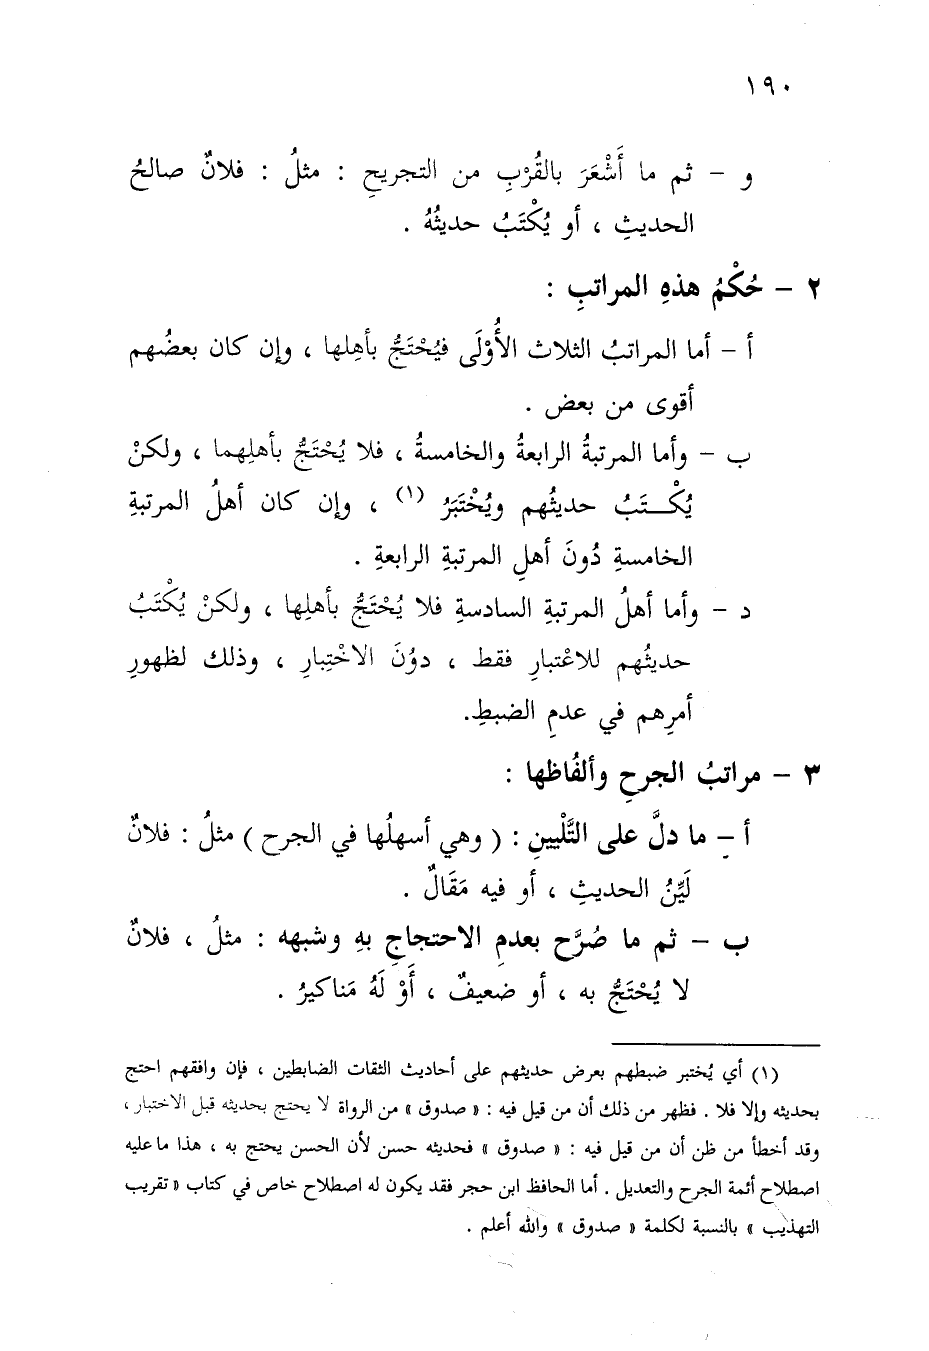 ١٩٠
و – ثم ما أَشْعَرَ بالقُرْبِ من التجريحِ : مثلُ : فلانٌ صالحُ
الحديثِ ، أو يُكْتَبُ حديثُهُ .
٢ – حُكْمُ هذهِ المراتبِ :
أ – أما المراتبُ الثلاث الأُوْلَى فيُحْتَجُّ بأهِلها ، وإن كان بعضُهم
أقوى من بعض .
ب – وأما المرتبةُ الرابعةُ والخامسةُ ، فلا يُحْتَجُّ بأهلِهما ، ولكنْ
يُكْتَبُ حديثُهم ويُخْتَبَرُ (١) ، وإن كان أهلُ المرتبةِ
الخامسةِ دُونَ أهلِ المرتبةِ الرابعةِ .
د – وأما أهلُ المرتبةِ السادسةِ فلا يُحْتَجُّ بأهلِها ، ولكنْ يُكْتَبُ
حديثُهم للاعْتبارِ فقط ، دوُنَ الاخْتِبارِ ، وذلك لظهورِ
أمرِهم في عدمِ الضبطِ.
٣ – مراتبُ الجرحِ وألفُاظها :
أ – ما دلَّ على التَّلْيينِ : ( وهي أسهلُها في الجرح ) مثلُ : فلانٌ
لَيِّنُ الحديثِ ، أو فيه مَقَالٌ .
ب – ثم ما صُرَّح بعدمِ الاحتجاجِ بهِ وشبهه : مثلُ ، فلانٌ
لا يُحْتَجُّ به ، أو ضعيفٌ ، أَوْ لَهُ مَناكيرُ .
(١) أي يُختبر ضبطهم بعرض حديثهم على أحاديث الثقات الضابطين ، فإن وافقهم احتج
بحديثه وإلا فلا . فظهر من ذلك أن من قيل فيه : « صدوق » من الرواة لا يحتج بحديثه قبل الاختبار ،
وقد أخطأ من ظن أن من قيل فيه : « صدوق » فحديثه حسن لأن الحسن يحتج به ، هذا ما عليه
اصطلاح أئمة الجرح والتعديل . أما الحافظ ابن حجر فقد يكون له اصطلاح خاص في كتاب « تقريب
التهذيب » بالنسبة لكلمة « صدوق » والله أعلم .